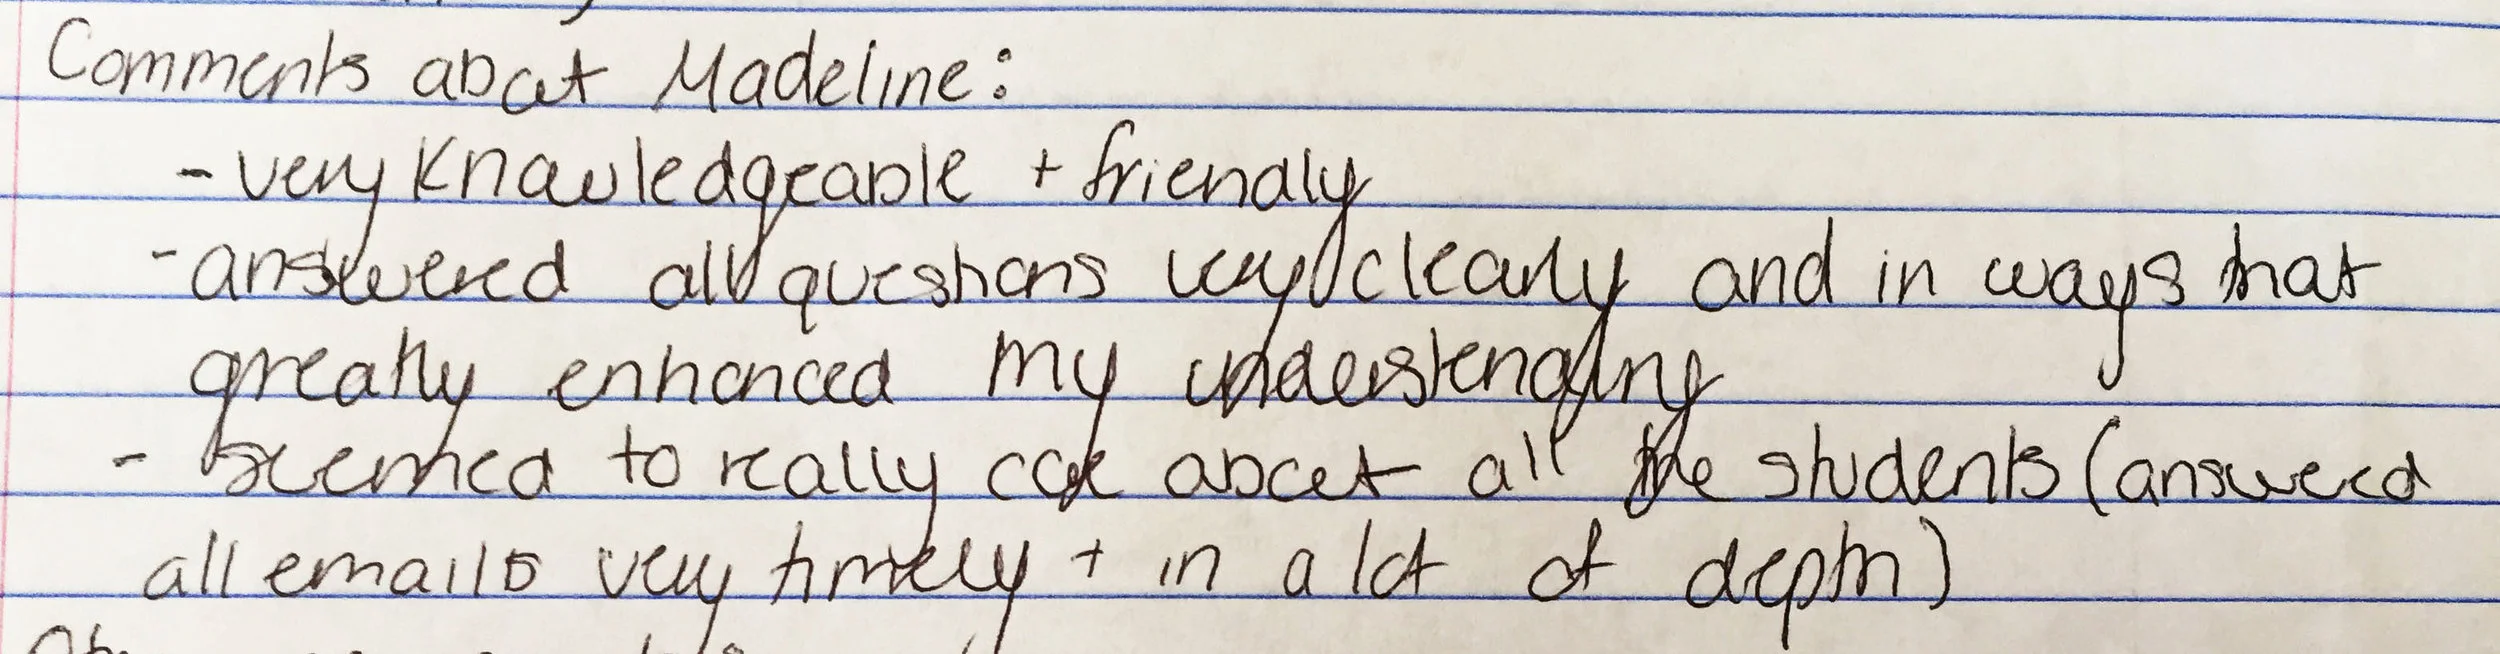 Comments about Madeline:
- very knowledgeable + friendly
- answered all questions very clearly and in ways that
greatly enhanced my understanding
- seemed to really care about all the students (answered
all emails very timely + in a lot of depth)